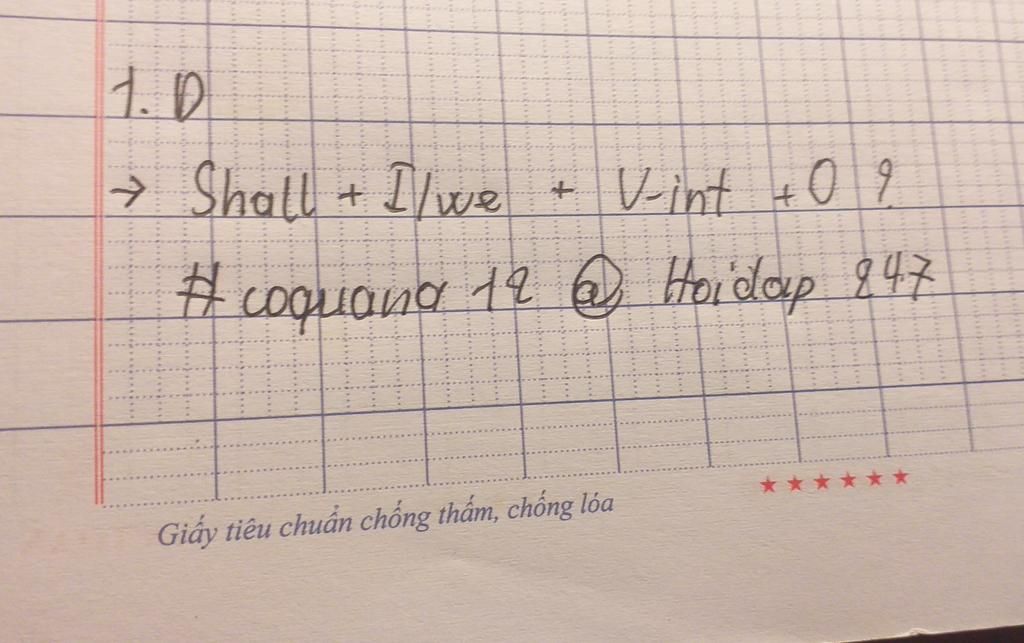 1. D
→ Shall + I/we + V-inf + O ?
# coquana 12 @ Hoidap 247
Giấy tiêu chuẩn chống thấm, chống lóa